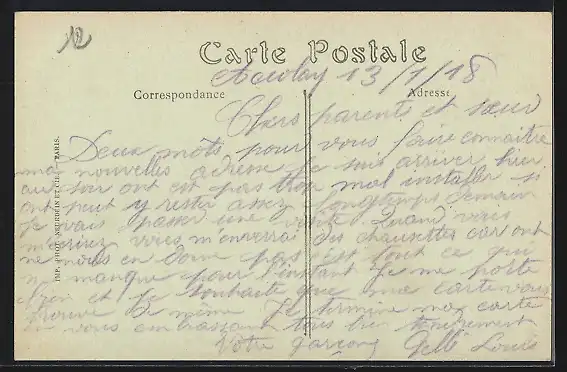 12
Carte Postale
13/1/18
Correspondance
Adresse
Chers parents et sœur
Deux mots pour vous faire connaitre
ma nouvelles adresse je suis arriver hier
au soir ont est pas trop mal installer si
ont peut y rester assez longtemps Demain
je vais passer une visite Quand vous
vous m'enverrai des chaussettes car ont
ne nous en donne pas c'est tout ce qui
me manque pour l'instant je me porte
bien et je souhaite que ma carte vous
trouve de même Je termine ma carte
en vous embrassant tous bien tendrement
Votre garçon Louis
IMP. PHOT. NEURDEIN ET CIE. — PARIS.